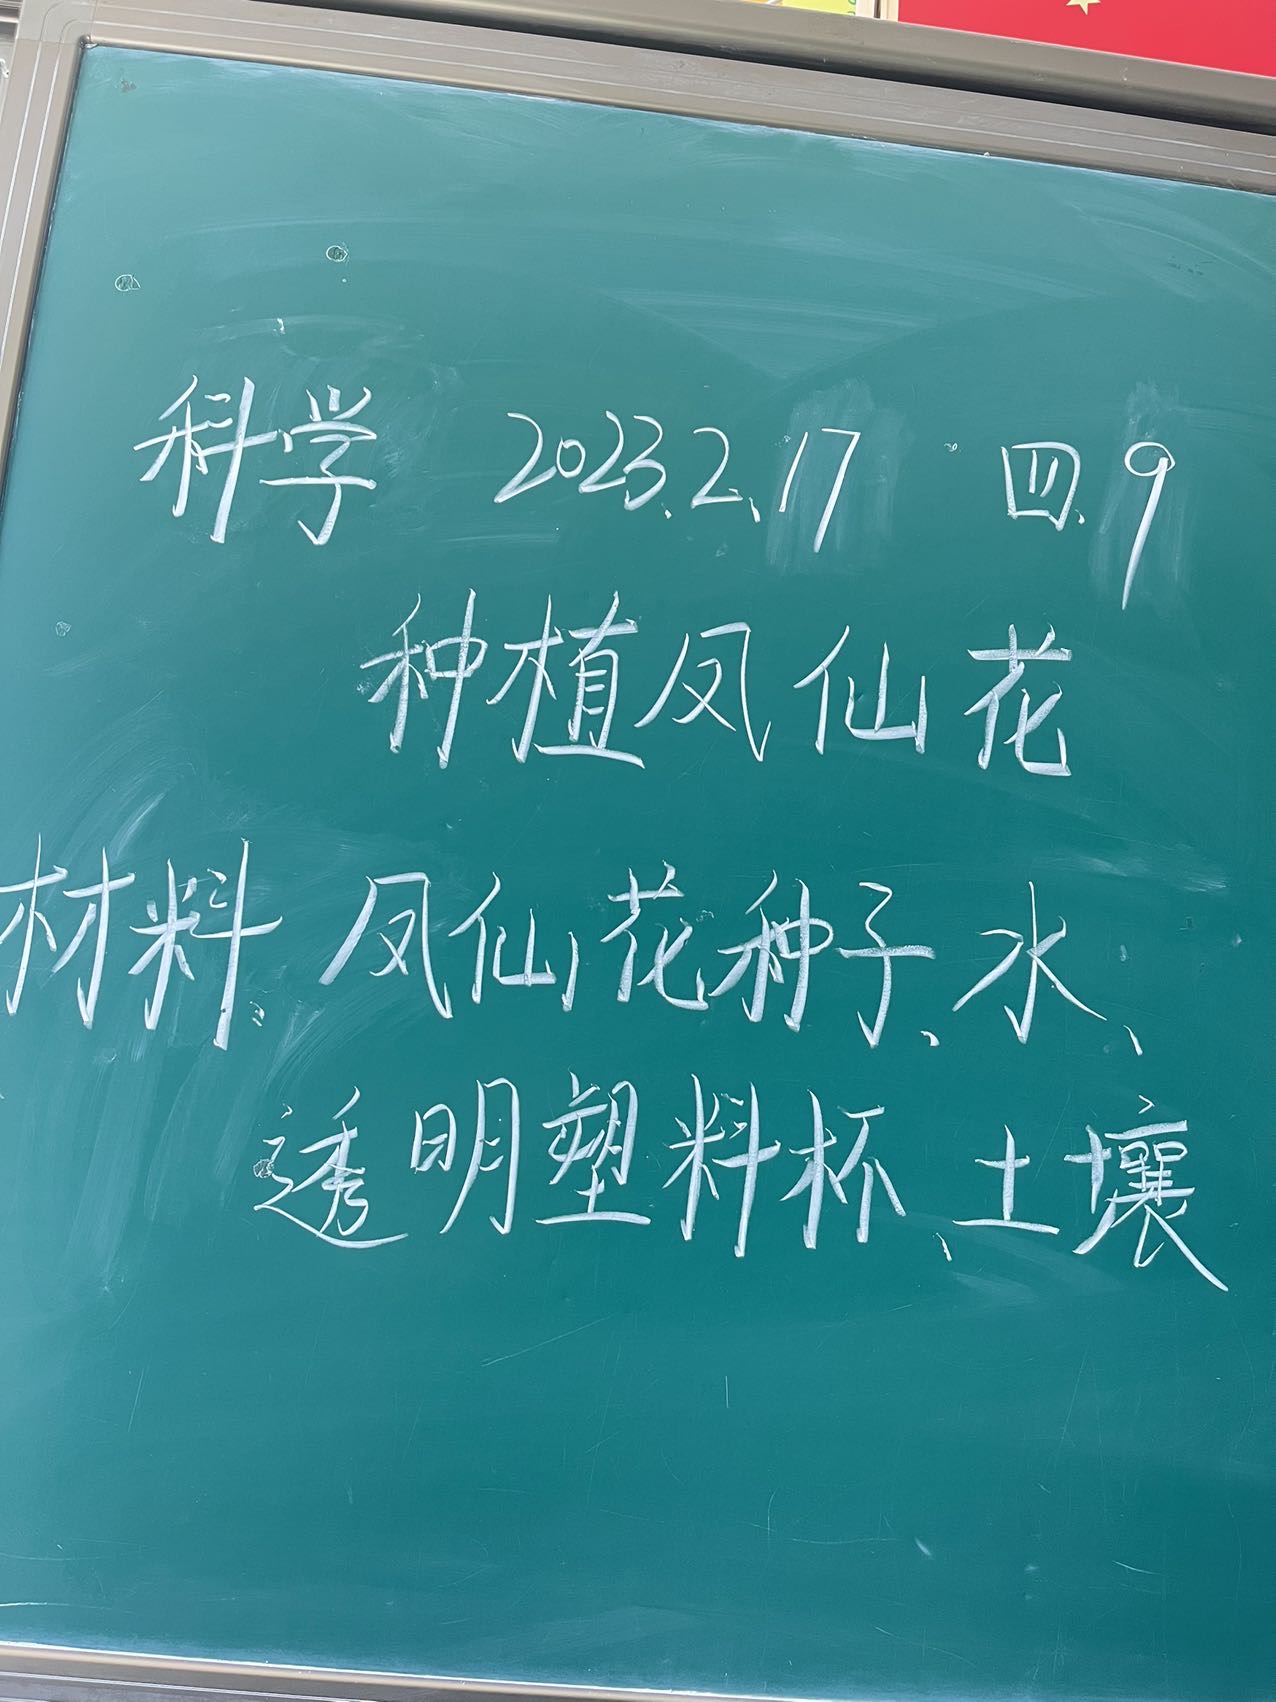 科学 2023.2.17 四.9
种植凤仙花
材料:凤仙花种子、水、
透明塑料杯、土壤